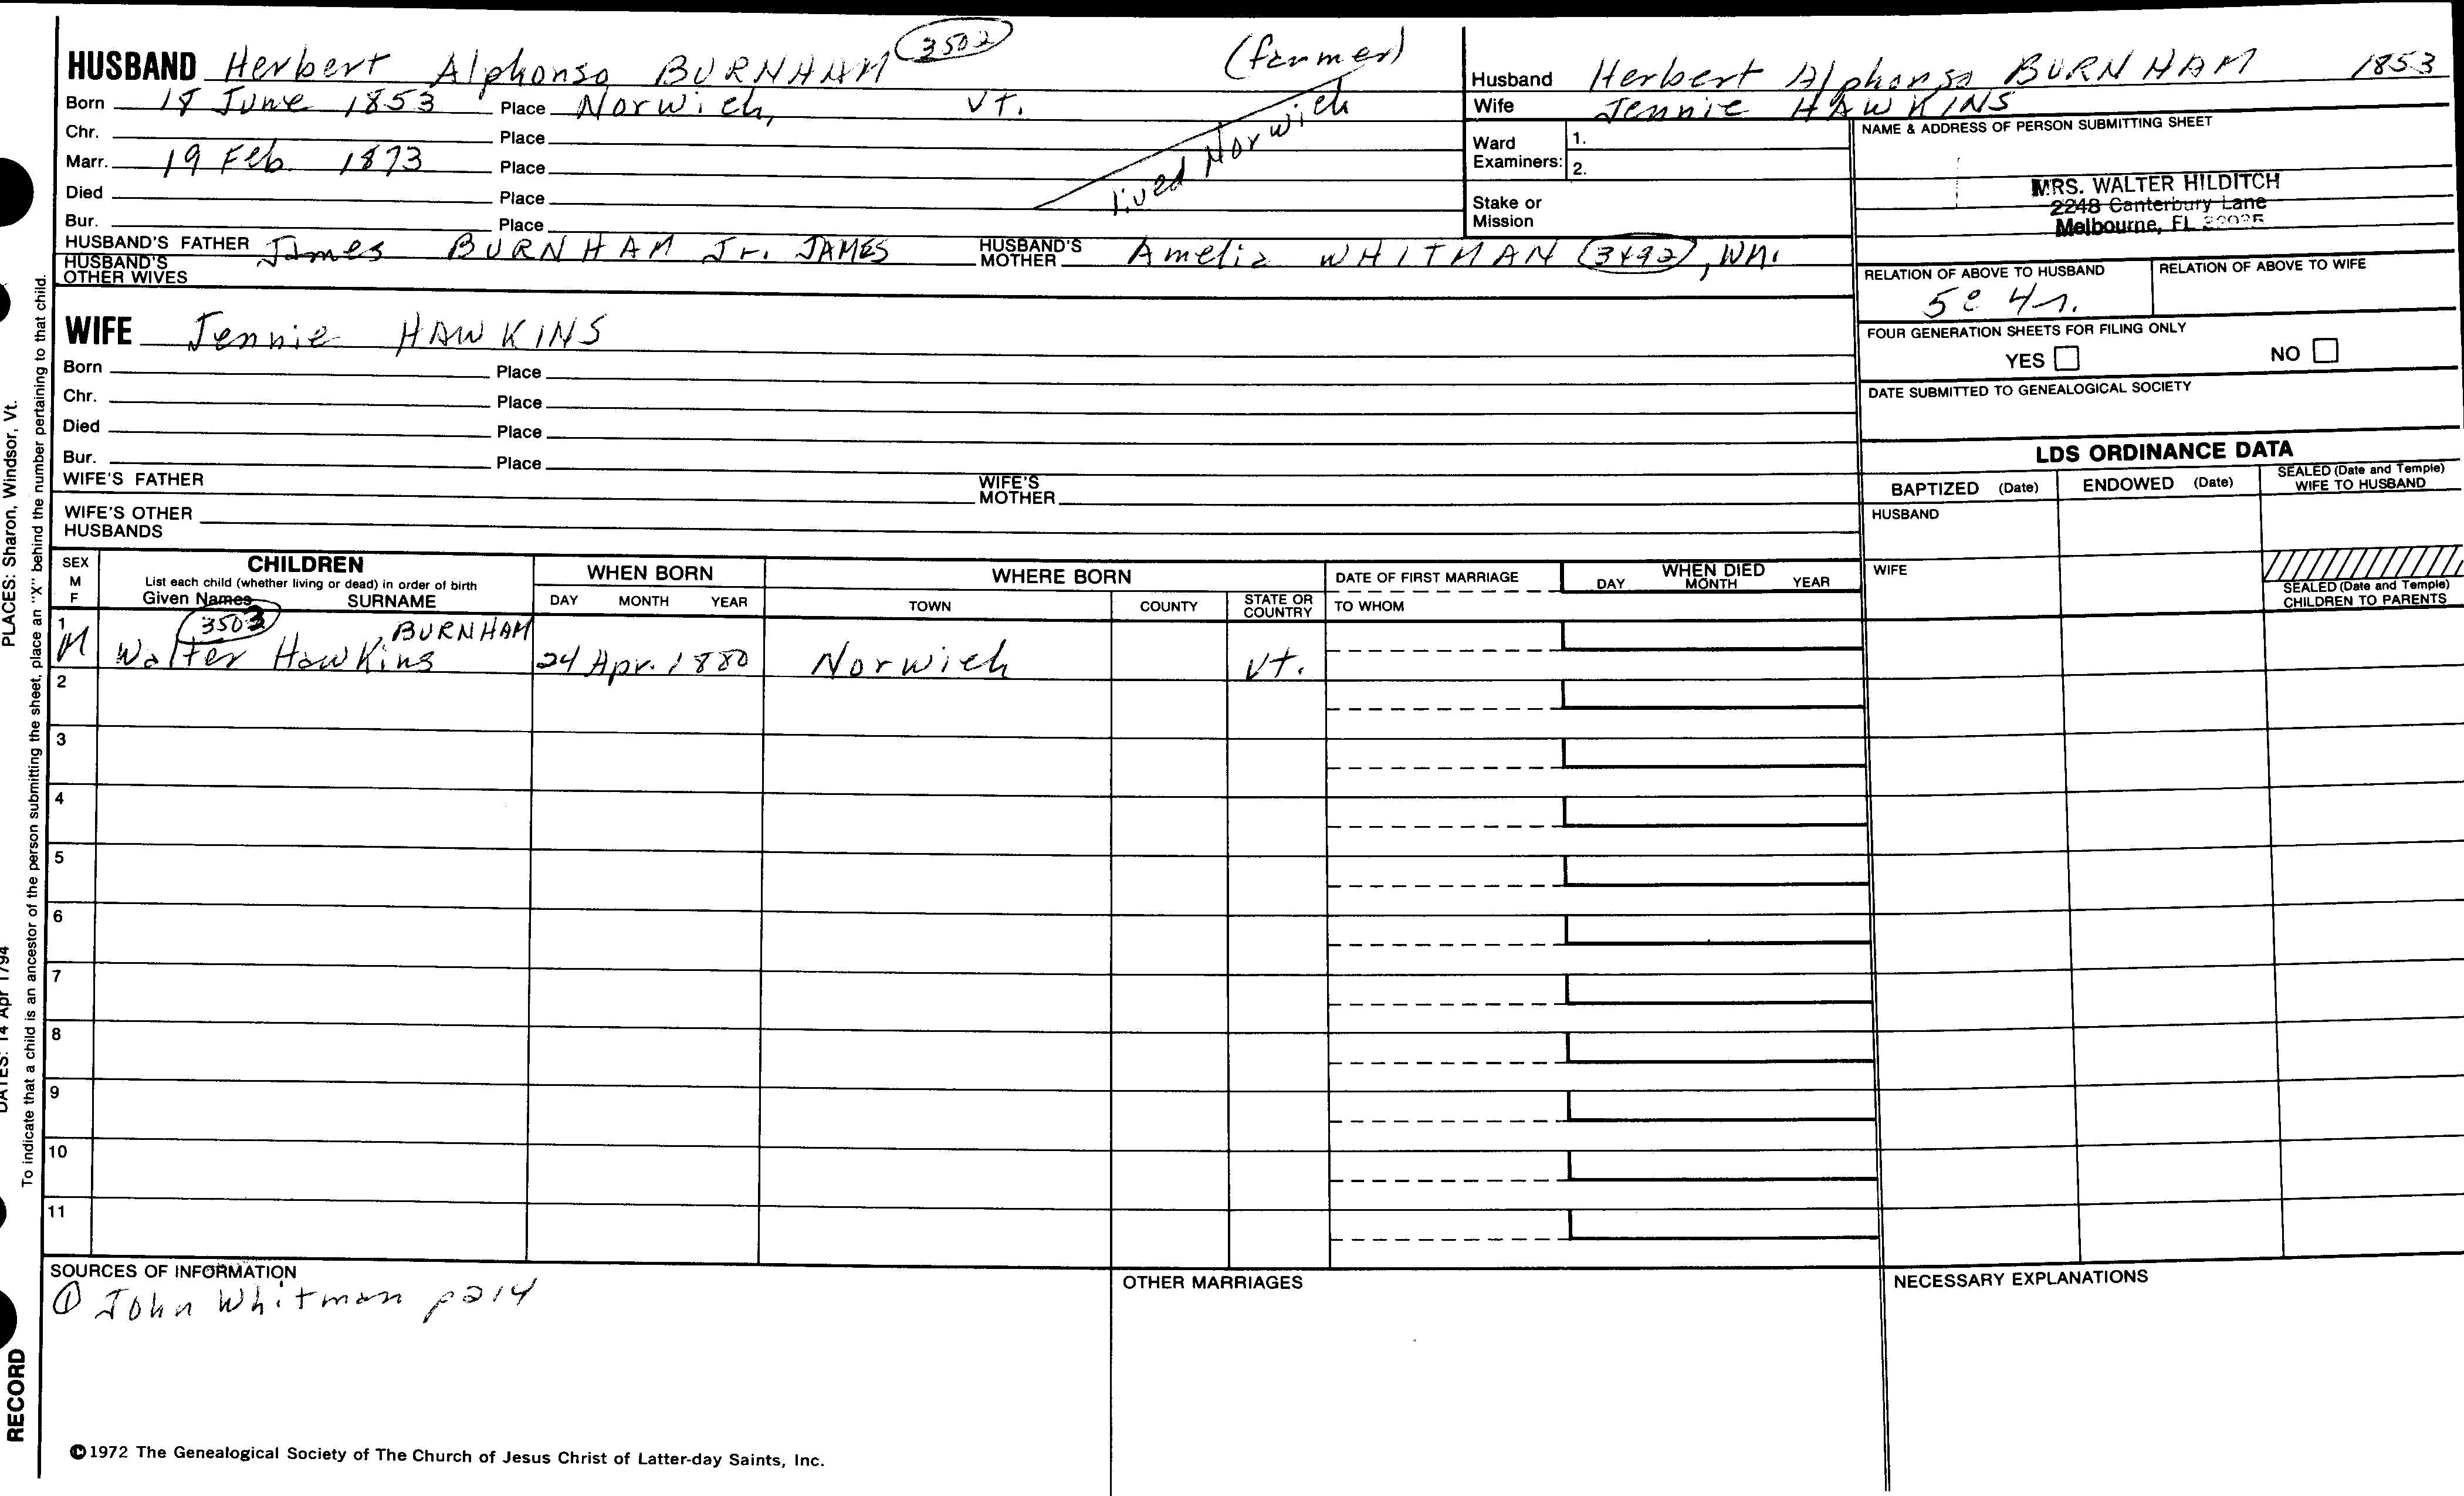 HUSBAND Herbert Alphonso BURNHAM 3502 (farmer)
Born 18 June 1853 Place Norwich, Vt.
Chr. Place
Marr. 19 Feb. 1873 Place
Died Place
Bur. Place
lived Norwich
HUSBAND'S FATHER James BURNHAM Jr. JAMES HUSBAND'S MOTHER Amelia WHITMAN (3492), WM.
HUSBAND'S OTHER WIVES
WIFE Jennie HAWKINS
Born Place
Chr. Place
Died Place
Bur. Place
WIFE'S FATHER WIFE'S MOTHER
WIFE'S OTHER HUSBANDS
Husband Herbert Alphonso BURNHAM 1853
Wife Jennie HAWKINS
Ward Examiners: 1.
2.
Stake or Mission
NAME & ADDRESS OF PERSON SUBMITTING SHEET
MRS. WALTER HILDITCH
2248 Canterbury Lane
Melbourne, FL
RELATION OF ABOVE TO HUSBAND RELATION OF ABOVE TO WIFE
5c 4r.
FOUR GENERATION SHEETS FOR FILING ONLY
YES NO
DATE SUBMITTED TO GENEALOGICAL SOCIETY
LDS ORDINANCE DATA
BAPTIZED (Date) ENDOWED (Date) SEALED (Date and Temple) WIFE TO HUSBAND
HUSBAND
WIFE
SEALED (Date and Temple) CHILDREN TO PARENTS
SEX M F
CHILDREN
List each child (whether living or dead) in order of birth
Given Names SURNAME
WHEN BORN
DAY MONTH YEAR
WHERE BORN
TOWN COUNTY STATE OR COUNTRY
DATE OF FIRST MARRIAGE
TO WHOM
WHEN DIED
DAY MONTH YEAR
1 M Walter Hawkins 3503, BURNHAM 24 Apr. 1880 Norwich Vt.
2
3
4
5
6
7
8
9
10
11
SOURCES OF INFORMATION
① John Whitman p214
OTHER MARRIAGES
NECESSARY EXPLANATIONS
©1972 The Genealogical Society of The Church of Jesus Christ of Latter-day Saints, Inc.
PLACES: Sharon, Windsor, Vt.
To indicate that a child is an ancestor of the person submitting the sheet, place an "X" behind the number pertaining to that child.
DATES: 14 Apr 1794
RECORD